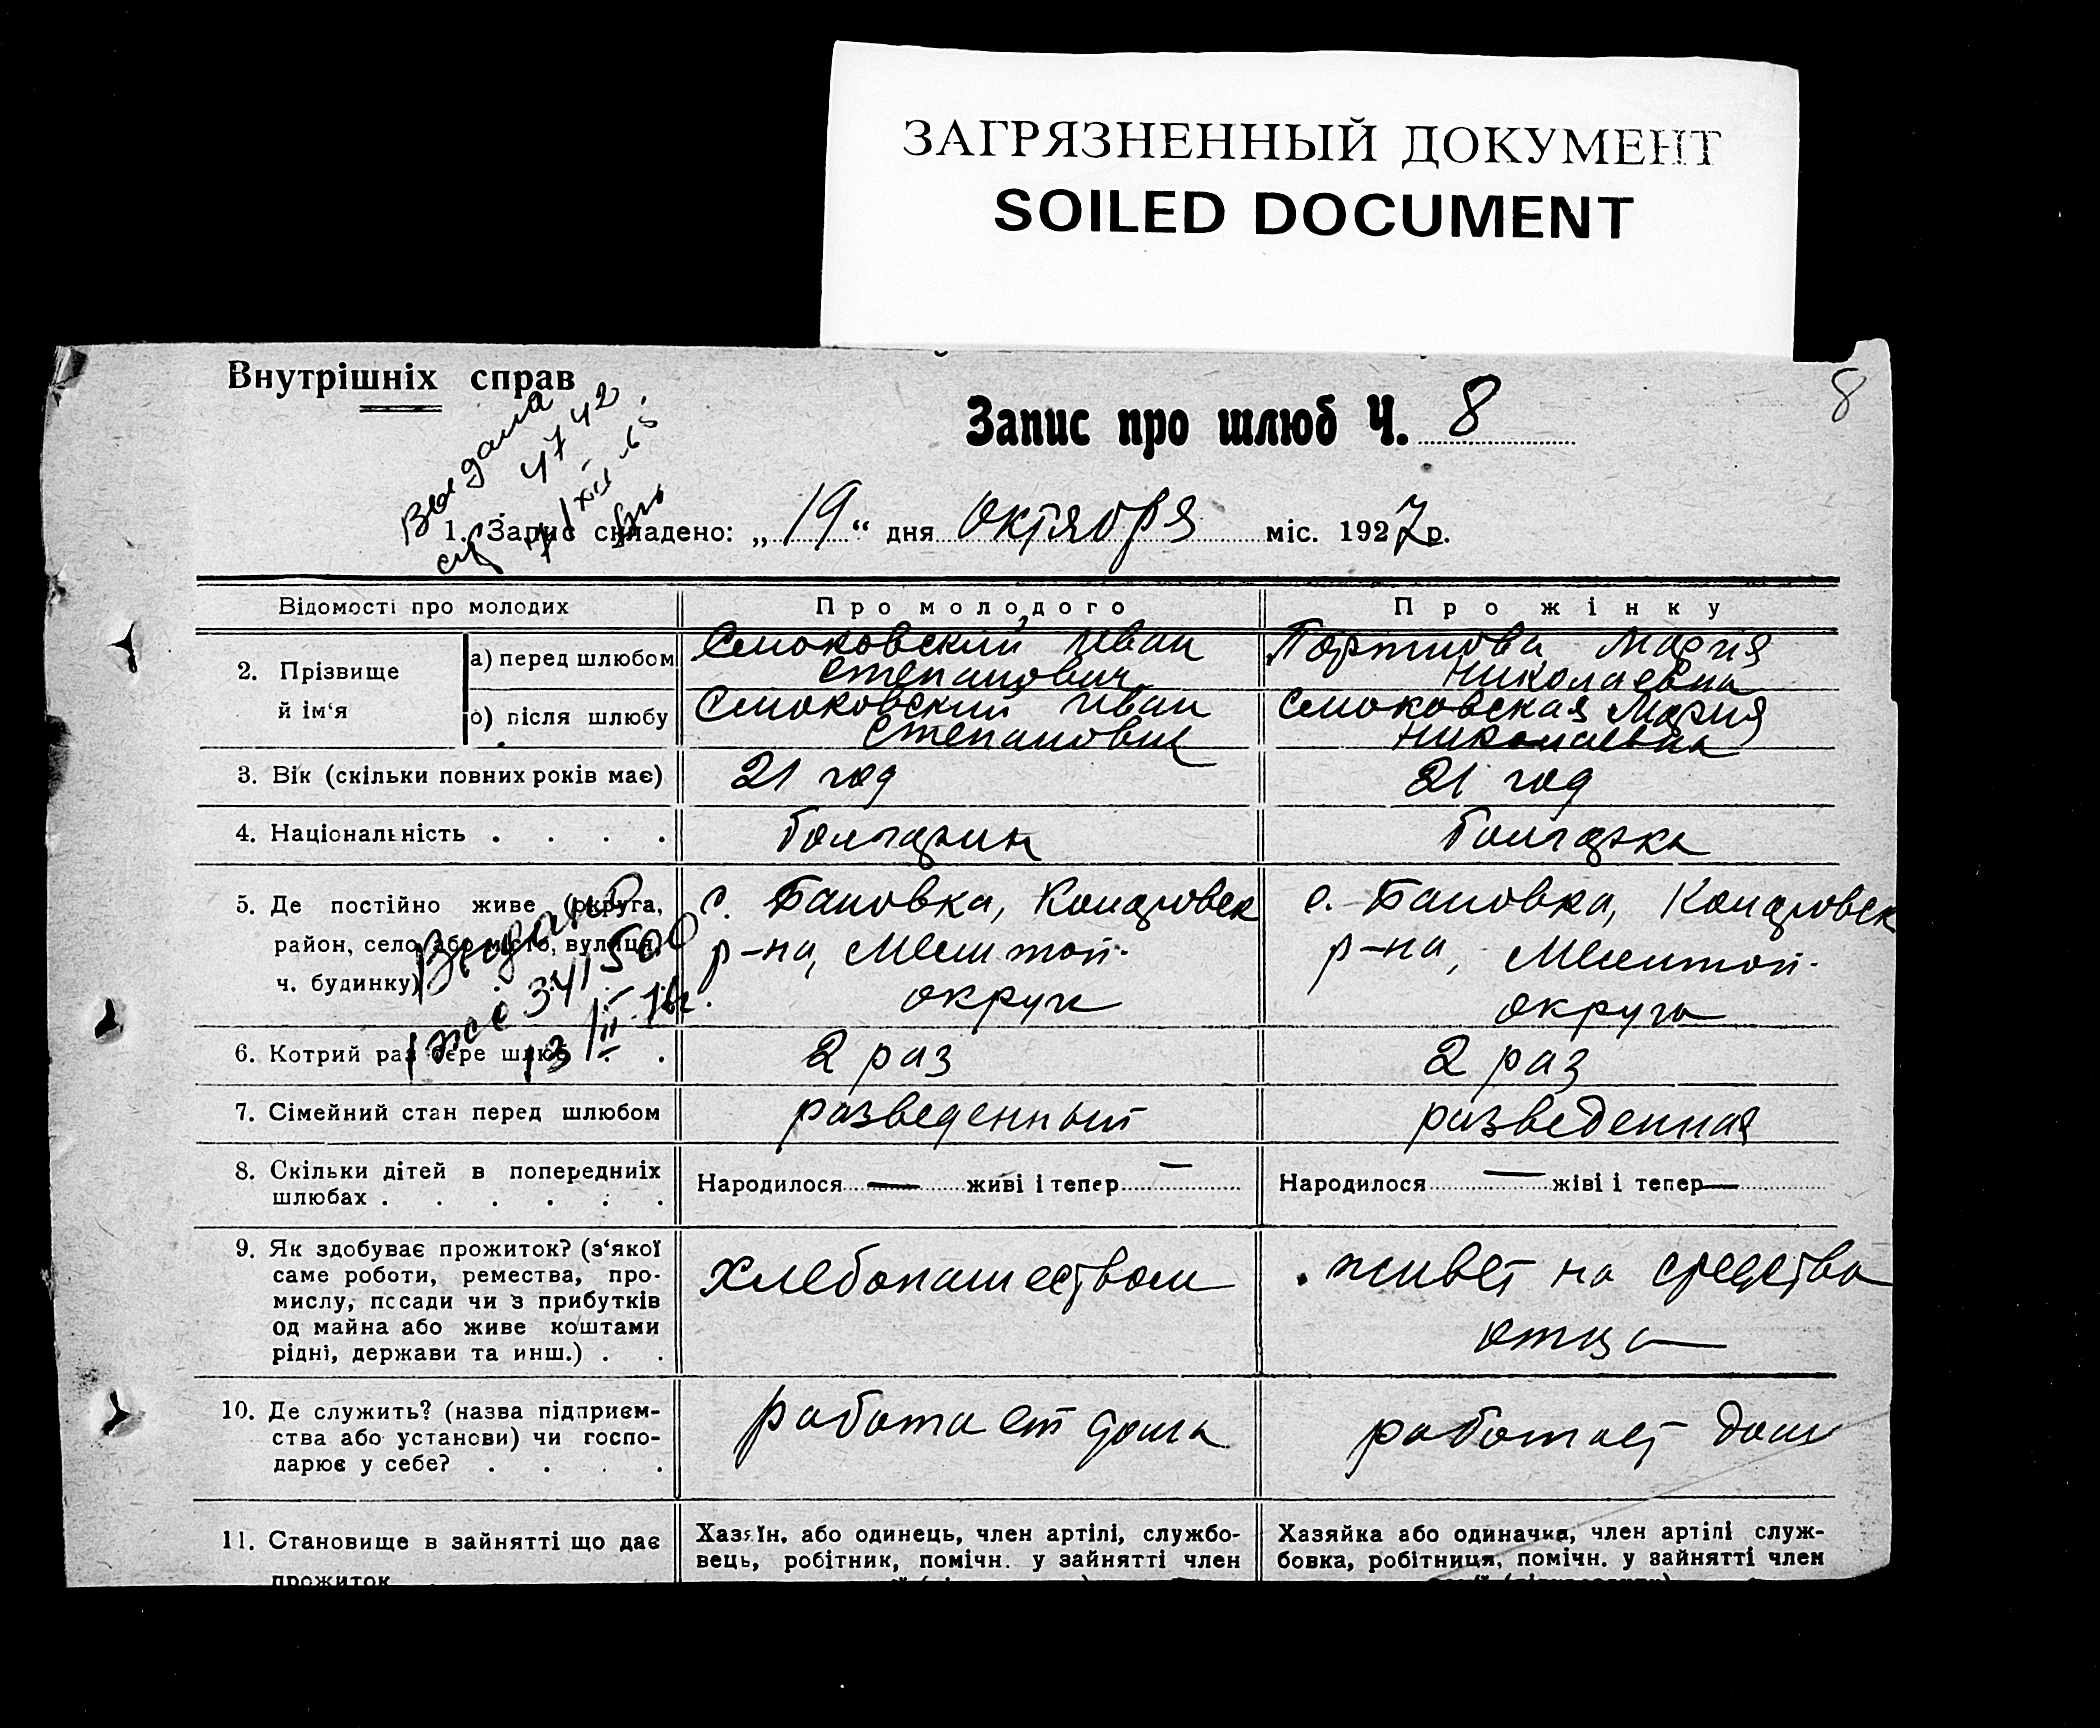 ЗАГРЯЗНЕННЫЙ ДОКУМЕНТ
SOILED DOCUMENT
Внутрішніх справ
8
Запис про шлюб Ч. 8
Выдана
4742
1. Запис складено: „19“ дня октября міс. 1927 р.
Відомості про молодих Про молодого Про жінку
2. Прізвище й ім‘я
а) перед шлюбом Смоковский Иван Степанович Мария Николаевна
б) після шлюбу Смоковский Иван Степанович Смоковская Мария Николаевна
3. Вік (скільки повних років має) 21 год 21 год
4. Національність . . . . болгарин болгарка
5. Де постійно живе (округа, с. Бановка, с. Бановка,
район, село, або місто, вулиця, р-на, Мелитоп. р-на, Мелитоп.
ч. будинку) округа округа
Выдано
6. Котрий раз бере шлюб . . 2 раз 2 раз
7. Сімейний стан перед шлюбом разведенный разведенная
8. Скільки дітей в попередниіх
шлюбах . . . . . . Народилося — живі і тепер — Народилося — жіві і тепер —
9. Як здобуває прожиток? (з‘якої
саме роботи, ремества, про-
мислу, посади чи з прибутків
од майна або живе коштами
рідні, держави та инш.) . . хлебопашеством живет на средства
отца
10. Де служить? (назва підприєм-
ства або установи) чи госпо-
дарює у себе? . . . . работает дома работает дома
11. Становище в зайнятті що дає
прожиток
Хазяїн, або одинець, член артілі, службо-
вець, робітник, помічн. у зайнятті член
Хазяйка або одиначка, член артілі служ-
бовка, робітниця, помічн. у зайнятті член